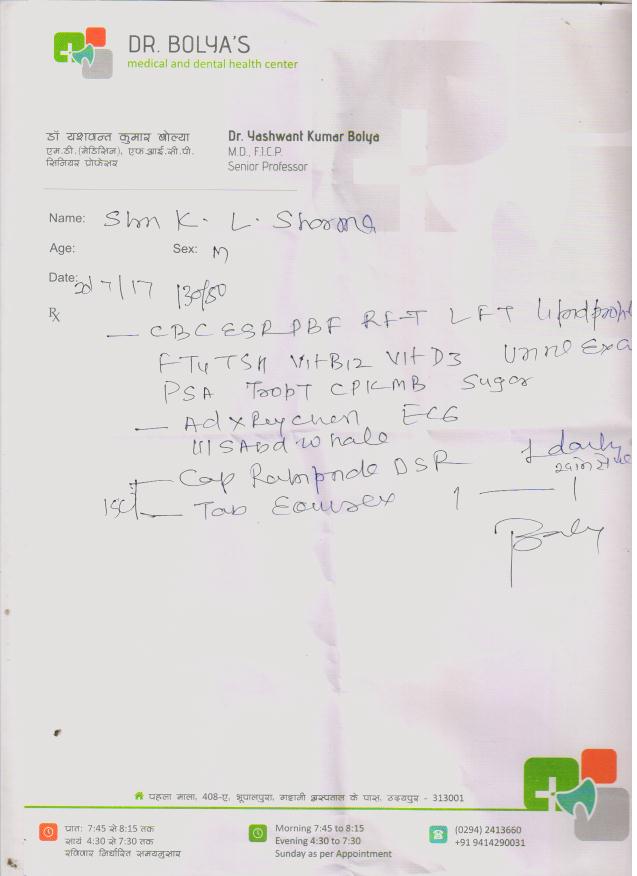 DR. BOLYA'S
medical and dental health center
डॉ यशवन्त कुमार बोल्या
एम.डी.(मेडिसिन), एफ.आई.सी.पी.
सिनियर प्रोफेसर
Dr. Yashwant Kumar Bolya
M.D., F.I.C.P.
Senior Professor
Name: Shri K. L. Sharma
Age: Sex: M
Date: 20/7/17 130/80
Rx
— CBC ESR PBF RFT LFT Lipid profile
FT4 TSH Vit B12 Vit D3 Urine Exa
PSA TropT CPKMB Sugar
— Ad x Ray chest ECG
U/S Abd whole
Cap DSR 1 daily
Tab 1 — 1
पहला माला, 408-ए, भूपालपुरा, शास्त्री अस्पताल के पास, उदयपुर - 313001
प्रात: 7:45 से 8:15 तक
सायं 4:30 से 7:30 तक
रविवार निर्धारित समयनुसार
Morning 7:45 to 8:15
Evening 4:30 to 7:30
Sunday as per Appointment
(0294) 2413660
+91 9414290031